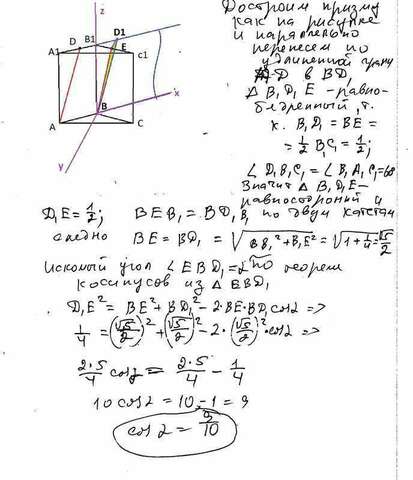 z
D
B1
D1
A1
E
c1
x
B
A
C
y
Достроим призму
как на рисунке
и параллельно
перенесем по
удлиненной грани
AD в BD₁
Δ B₁D₁E - равно-
бедренный, т.
к. B₁D₁ = B₁E =
= 1/2 B₁C₁ = 1/2;
∠ D₁B₁C₁ = ∠ B₁A₁C₁ = 60
Значит Δ B₁D₁E -
равносторонний и
D₁E = 1/2; BEB₁ = BD₁B₁ по двум катетам
BE = BD₁ = √(BB₁² + B₁E²) = √(1 + 1/4) = √5/2
Искомый угол ∠ EBD₁ = α по теореме
косинусов из Δ EBD₁
D₁E² = BE² + BD₁² - 2·BE·BD₁ cosα =>
1/4 = (√5/2)² + (√5/2)² - 2·(√5/2)²·cosα =>
2·5/4 cosα = 2·5/4 - 1/4
10 cosα = 10 - 1 = 9
cosα = 9/10